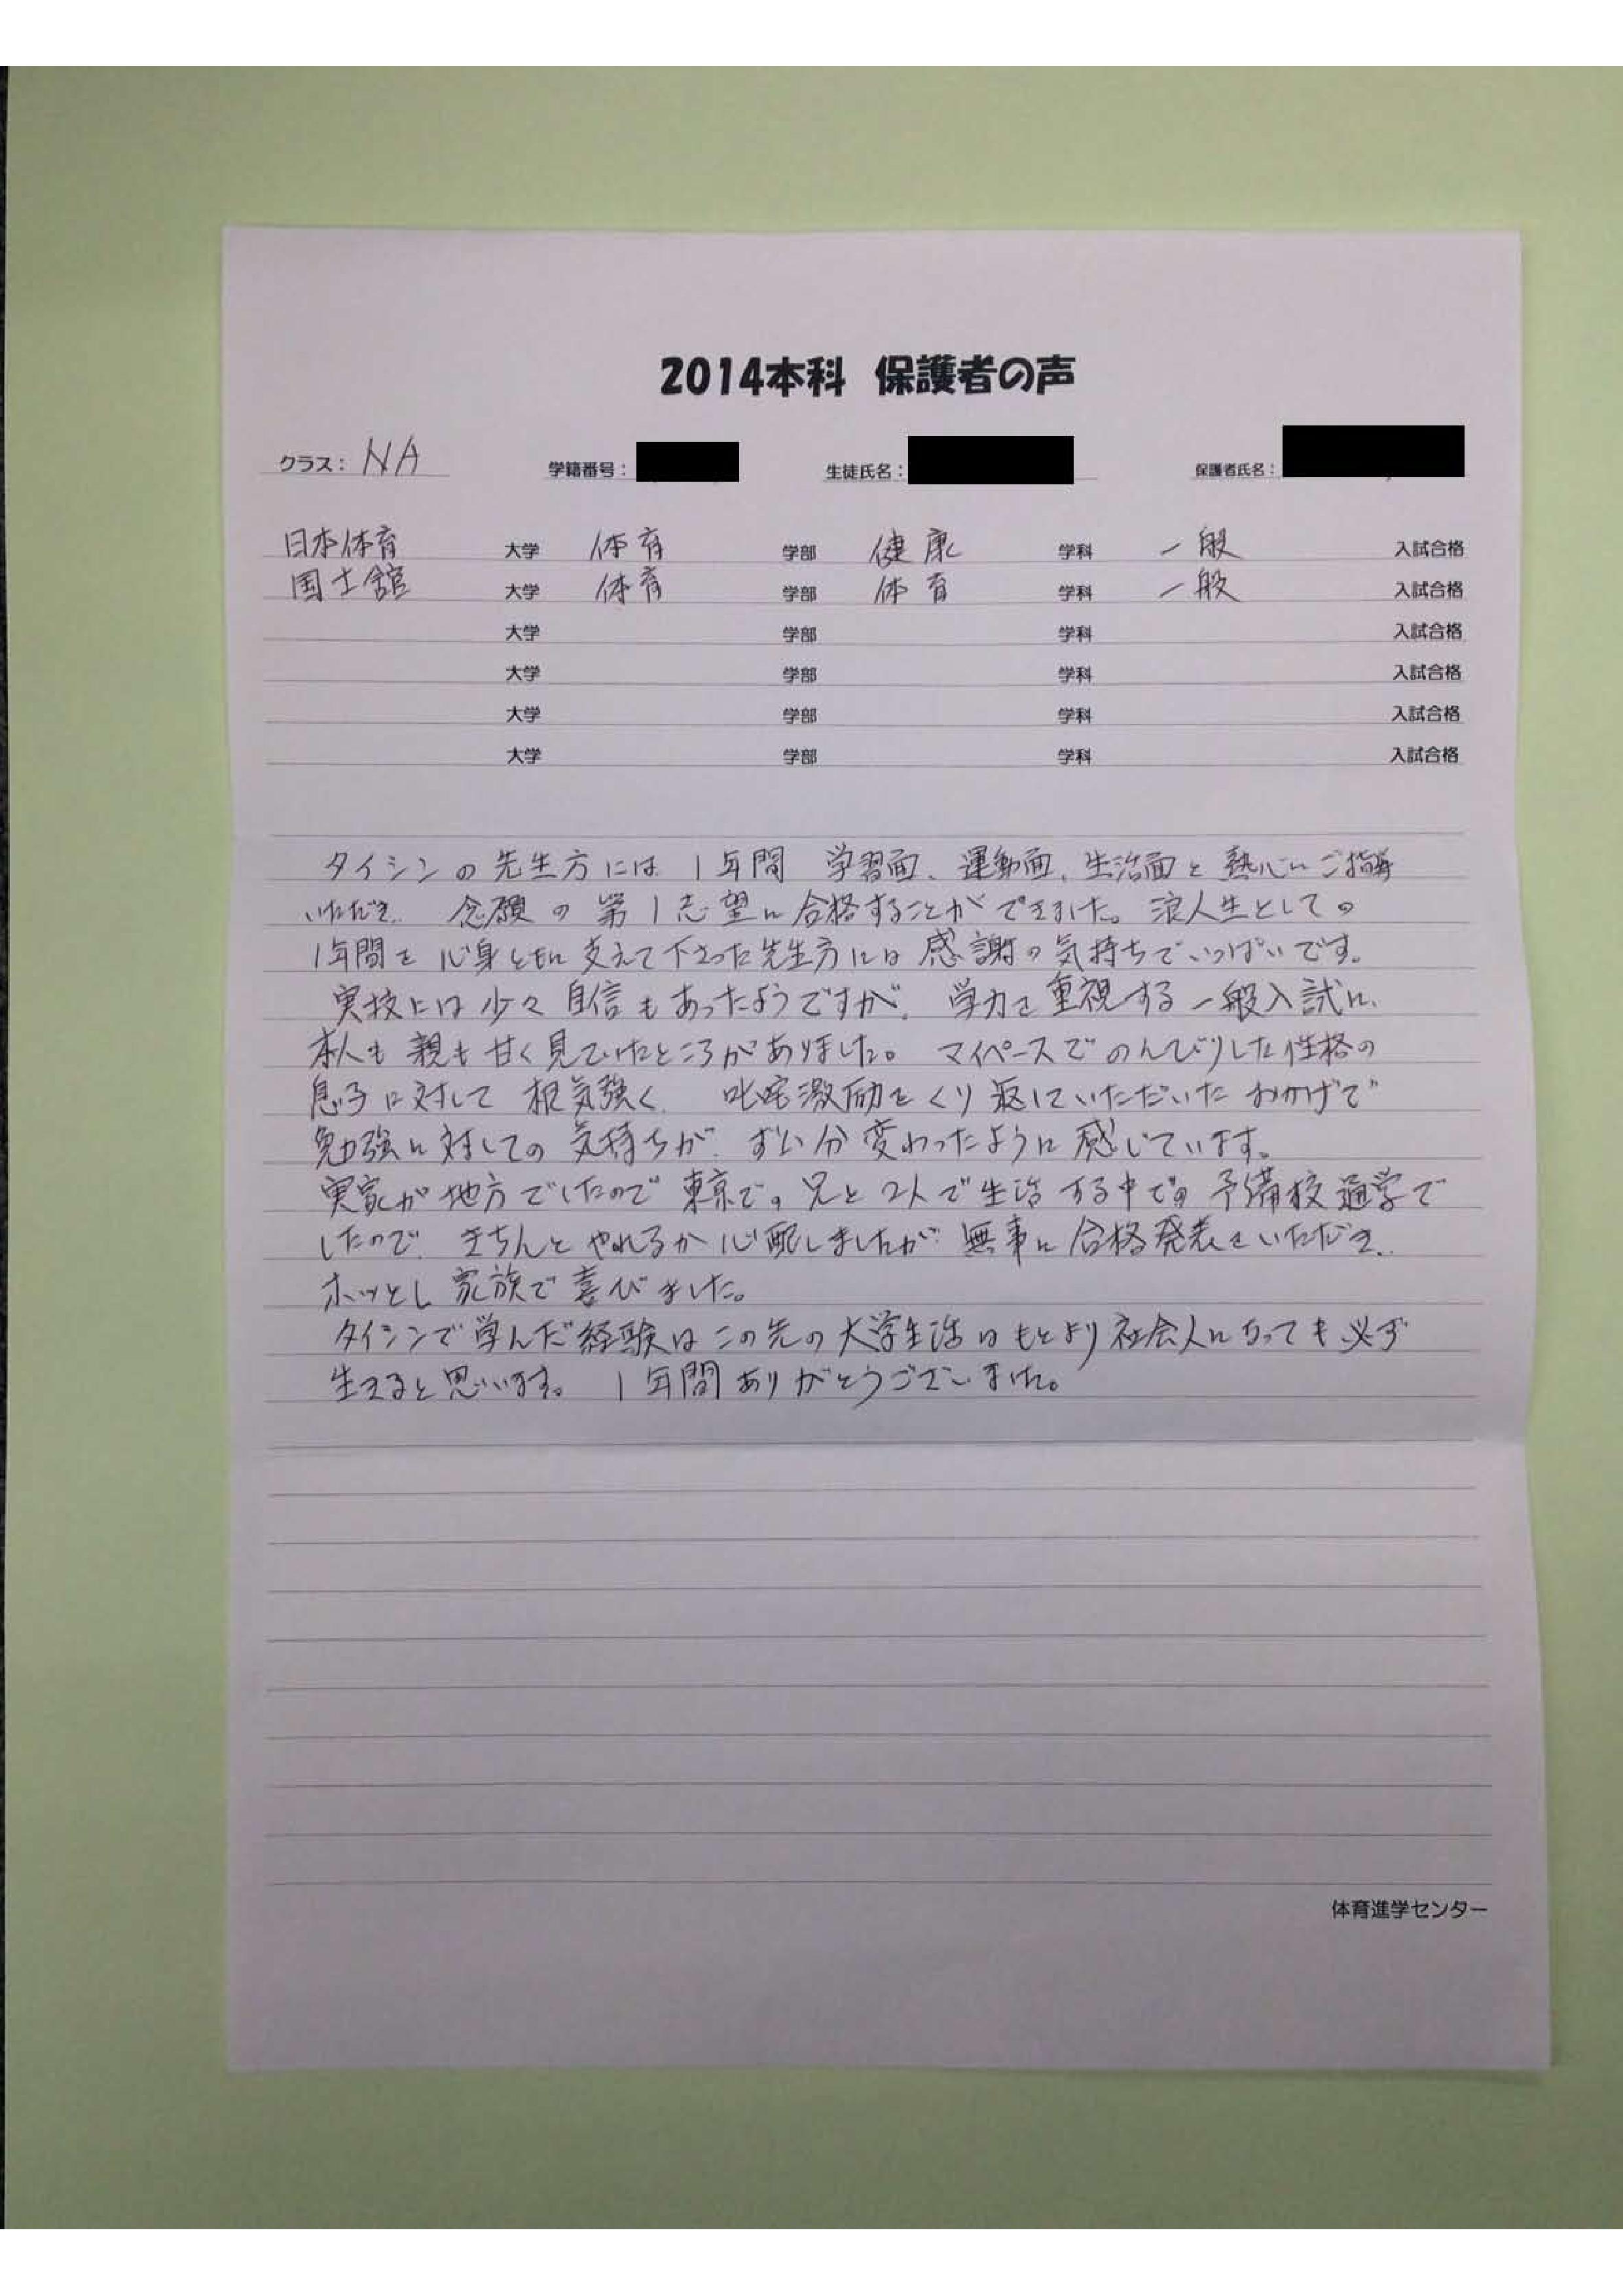 2014本科 保護者の声
クラス： NA 学籍番号： 生徒氏名： 保護者氏名：
日本体育 大学 体育 学部 健康 学科 一般 入試合格
国士舘 大学 体育 学部 体育 学科 一般 入試合格
大学 学部 学科 入試合格
大学 学部 学科 入試合格
大学 学部 学科 入試合格
大学 学部 学科 入試合格
タイシンの先生方には 1年間 学習面、運動面、生活面と 熱心にご指導
いただき、 念願の第1志望に合格することができました。浪人生としての
1年間を 心身ともに支えて下さった先生方には 感謝の気持ちでいっぱいです。
実技には少々自信もあったようですが、 学力を重視する一般入試に、
本人も親も甘く見ていたところがありました。 マイペースでのんびりした性格の
息子に対して 根気強く、 叱咤激励をくり返していただいたおかげで
勉強に対しての気持ちが、ずい分変わったように感じています。
実家が地方でしたので 東京での兄と2人で生活する中での予備校通学で
したので、きちんとやれるか心配しましたが、無事に合格発表をいただき、
ホッとし家族で喜びました。
タイシンで学んだ経験はこの先の大学生活はもとより社会人になっても必ず
生きると思います。 1年間ありがとうございました。
体育進学センター